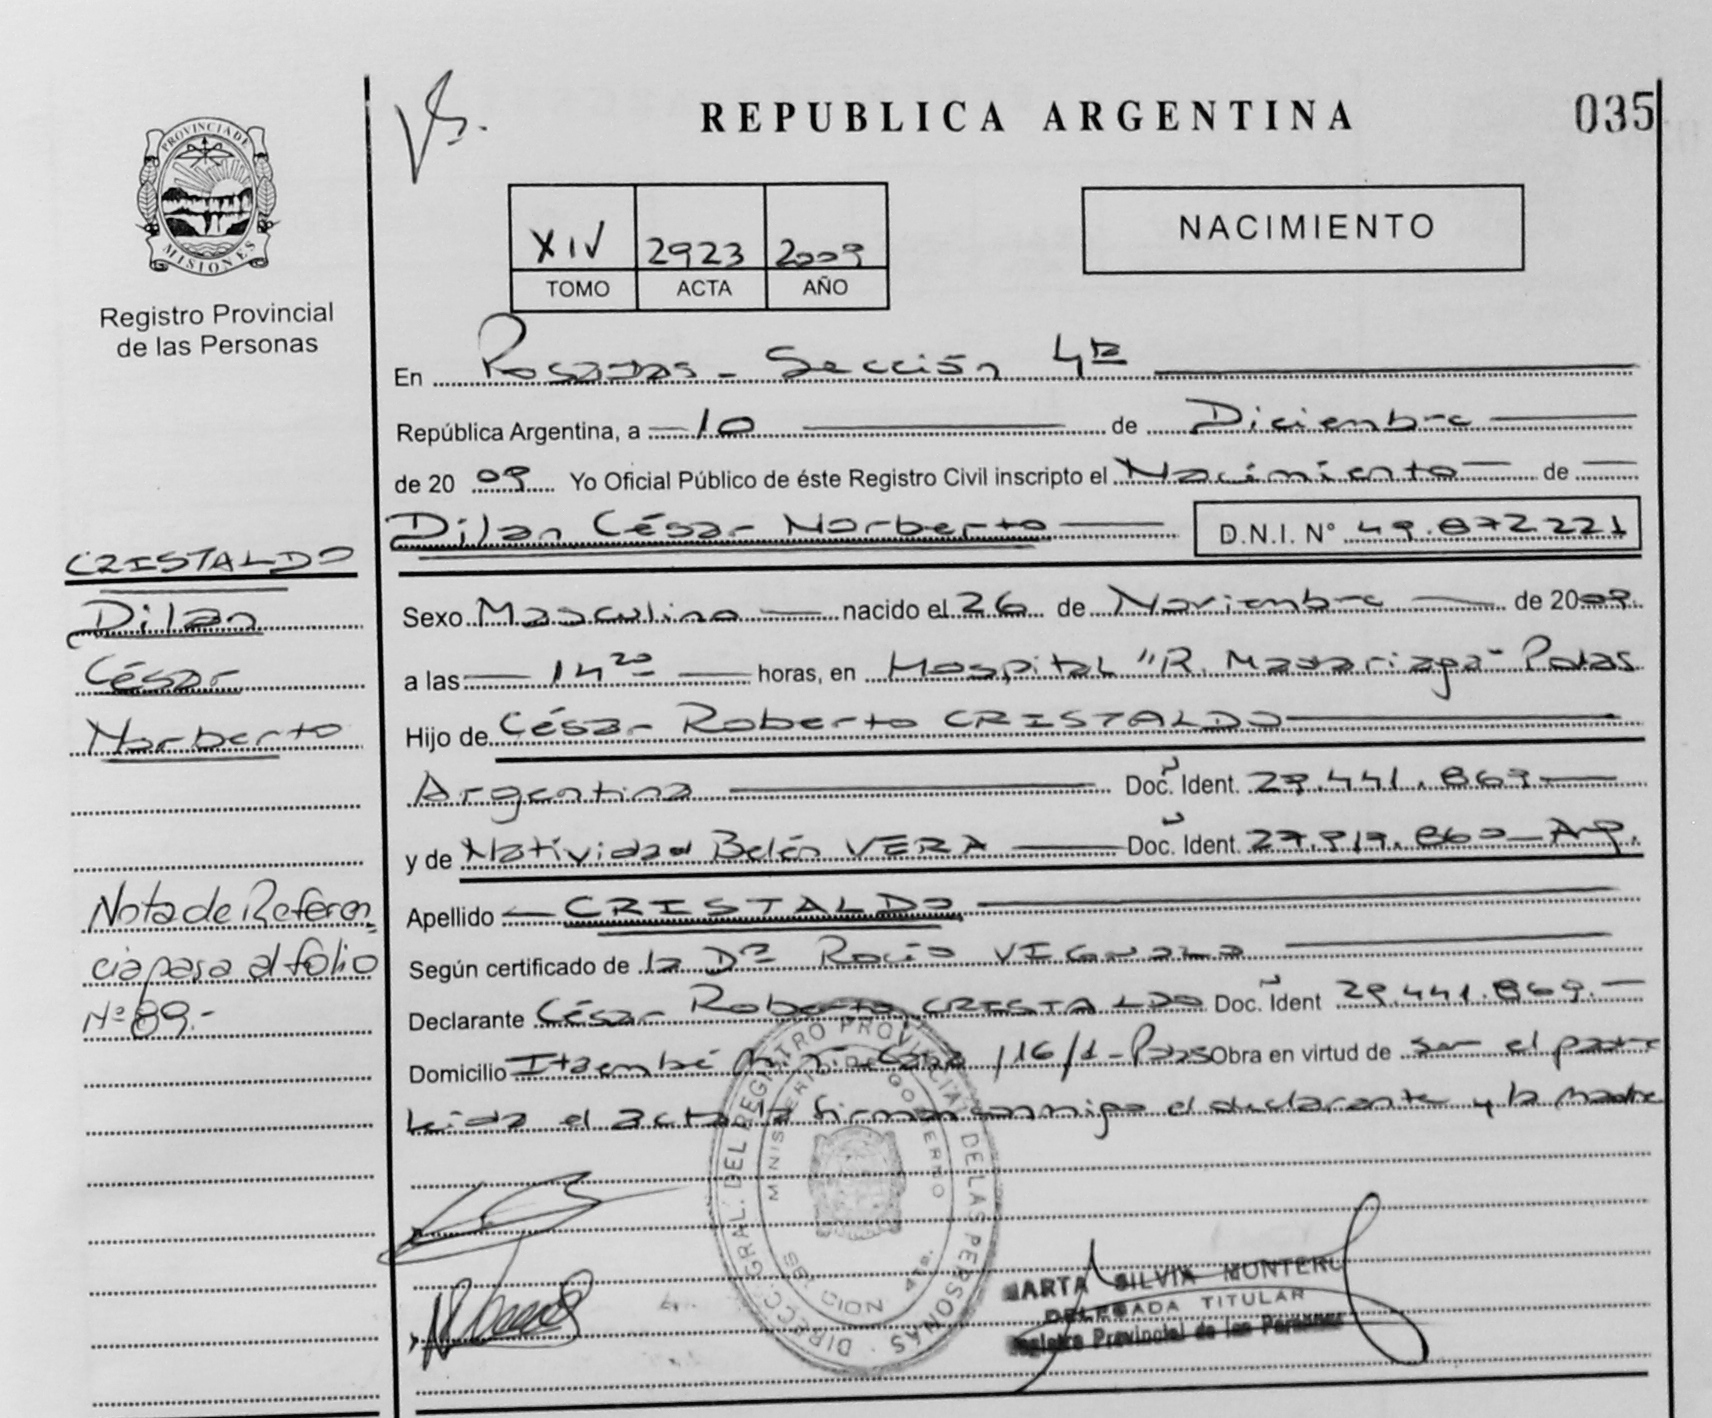 REPUBLICA ARGENTINA
035
PROVINCIA DE
MISIONES
Registro Provincial
de las Personas
XIV 2923 2009
TOMO ACTA AÑO
NACIMIENTO
En Posadas - Sección 4ta
República Argentina, a 10 de Diciembre
de 2009 Yo Oficial Público de éste Registro Civil inscripto el Nacimiento de
Dilan César Norberto D.N.I. Nº 49.872.221
Sexo Masculino nacido el 26 de Noviembre de 2009.
a las 14 20 horas, en Hospital "R. Madariaga" Pdas
Hijo de César Roberto CRISTALDO
Argentina Doc. Ident. 29.441.869
y de Natividad Belén VERA Doc. Ident. 27.917.860 Arg.
Apellido CRISTALDO
Según certificado de la Dra Rocío
Declarante César Roberto CRISTALDO Doc. Ident 29.441.869.
Domicilio Itaembé Miní Casa /16/1 - Pdas Obra en virtud de ser el padre
Leida el acta la firman conmigo el declarante y la madre
CRISTALDO
Dilan
César
Norberto
Nota de Referen
cia pasa al folio
Nº 89.-
DIRECC. GRAL. DEL REGISTRO PROVINCIAL DE LAS PERSONAS
MINISTERIO DE GOBIERNO
MARTA SILVIA MONTERO
DELEGADA TITULAR
Registro Provincial de las Personas